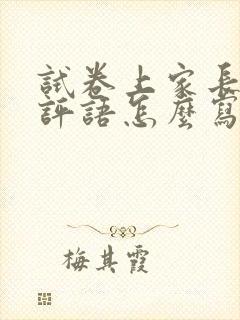 試卷上家長
評語怎麼寫
梅其霞